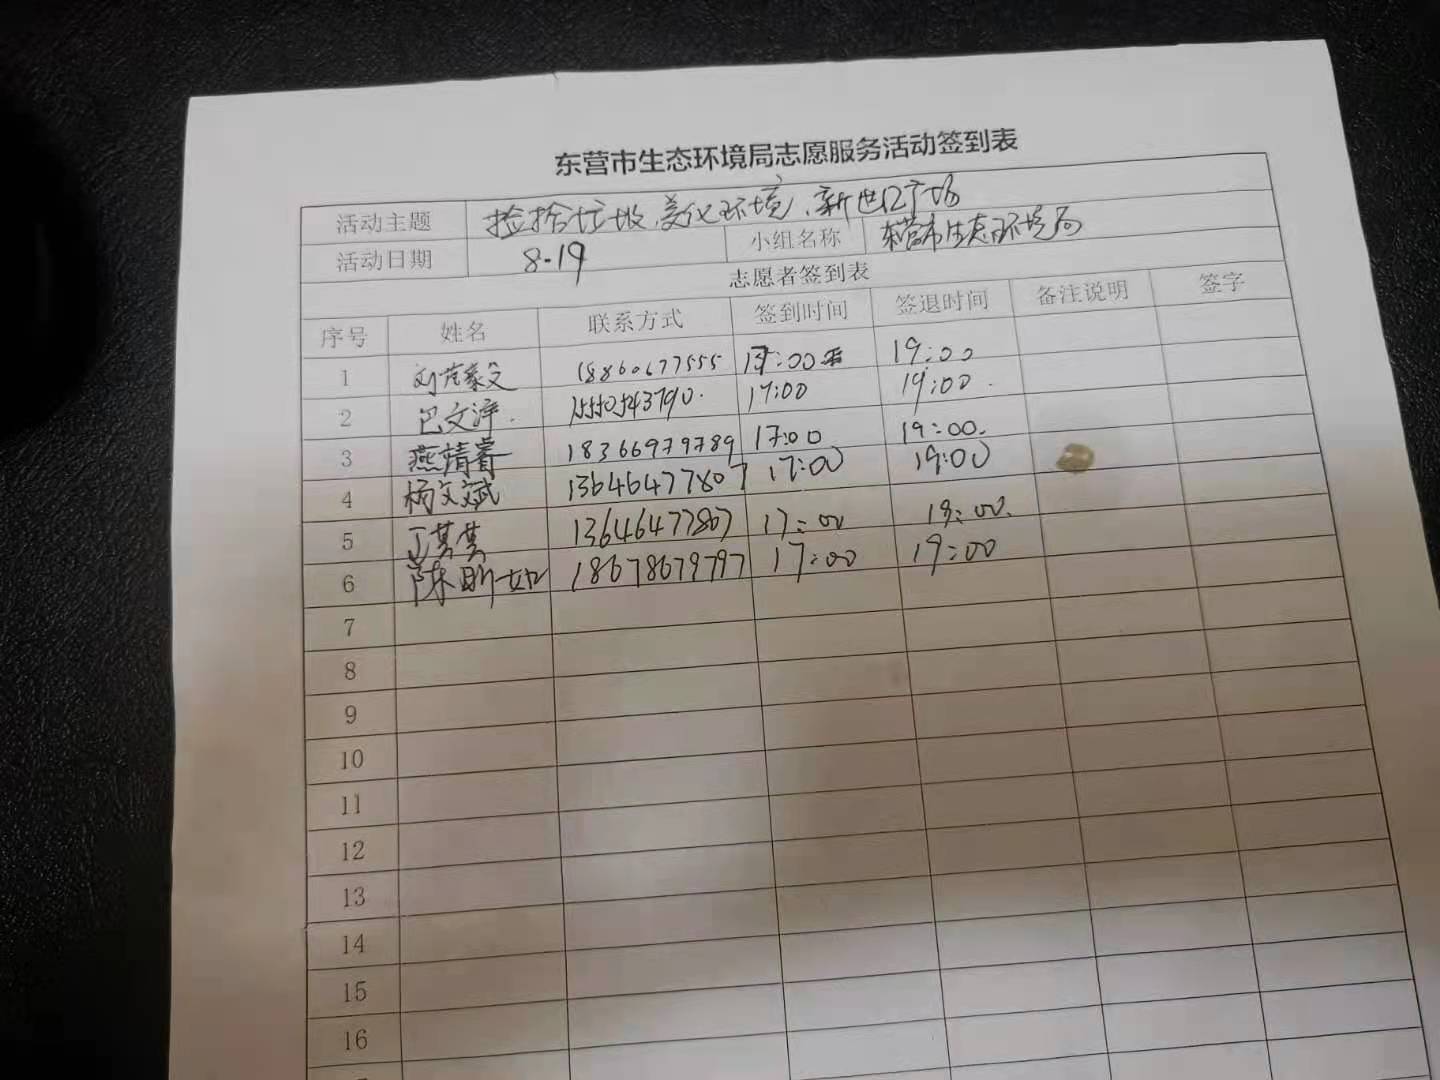 东营市生态环境局志愿服务活动签到表
活动主题 捡拾垃圾,美化环境,新世纪广场
活动日期 8.19 小组名称 东营市生态环境局
志愿者签到表
序号 姓名 联系方式 签到时间 签退时间 备注说明 签字
1 18860677555 17:00 19:00
2 巴文萍 15550543790 17:00 19:00
3 燕靖睿 18366979789 17:00 19:00
4 杨文斌 13646477807 17:00 19:00
5 丁其其 13646477867 17:00 19:00
6 陈昕如 18678679797 17:00 19:00
7
8
9
10
11
12
13
14
15
16